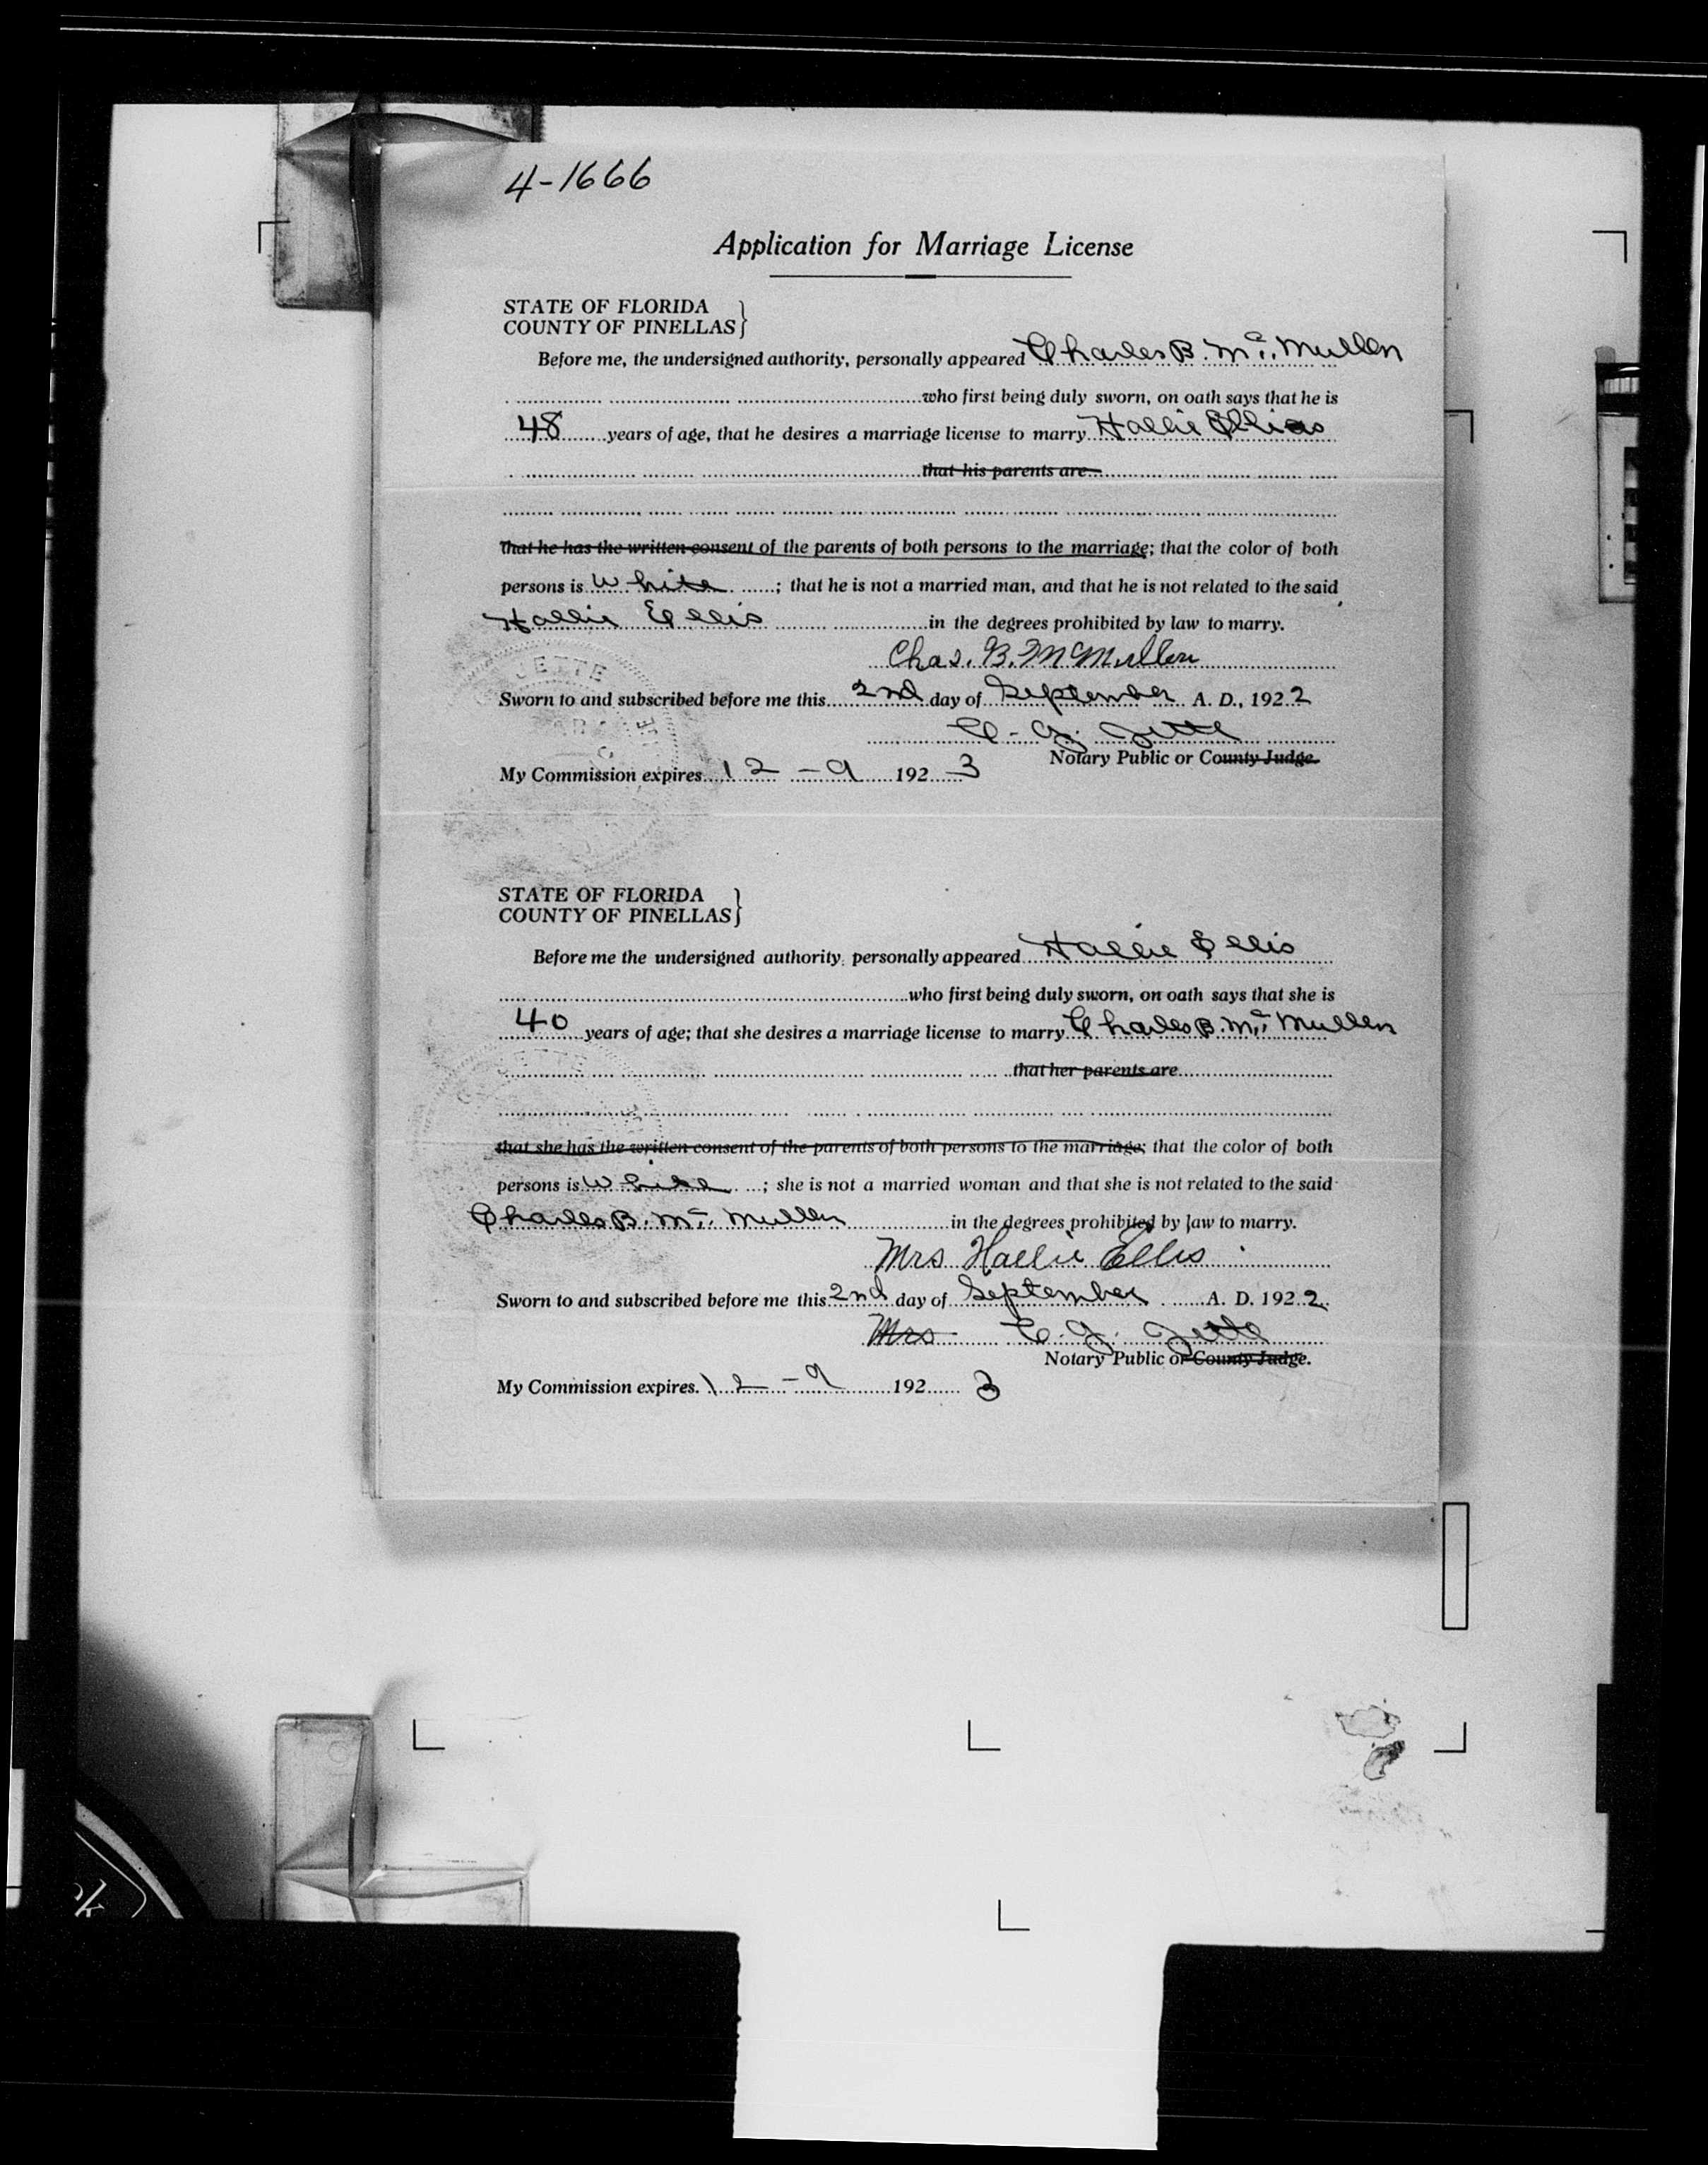 4-1666
Application for Marriage License
STATE OF FLORIDA }
COUNTY OF PINELLAS }
Before me, the undersigned authority, personally appeared Charles B. Mc. Mullen
who first being duly sworn, on oath says that he is
48 years of age, that he desires a marriage license to marry Hallie Ellis
that his parents are
that he has the written consent of the parents of both persons to the marriage; that the color of both
persons is White; that he is not a married man, and that he is not related to the said
Hallie Ellis in the degrees prohibited by law to marry.
Chas. B. McMullen
Sworn to and subscribed before me this 2nd day of September A. D., 1922
C. J. Jette
Notary Public or County Judge.
My Commission expires 12-9 1923
STATE OF FLORIDA }
COUNTY OF PINELLAS }
Before me the undersigned authority, personally appeared Hallie Ellis
who first being duly sworn, on oath says that she is
40 years of age; that she desires a marriage license to marry Charles B. Mc. Mullen
that her parents are
that she has the written consent of the parents of both persons to the marriage; that the color of both
persons is White; she is not a married woman and that she is not related to the said
Charles B. Mc. Mullen in the degrees prohibited by law to marry.
Mrs Hallie Ellis
Sworn to and subscribed before me this 2nd day of September A. D. 1922.
Mrs C. J. Jette
Notary Public or County Judge.
My Commission expires. 12-9 1923